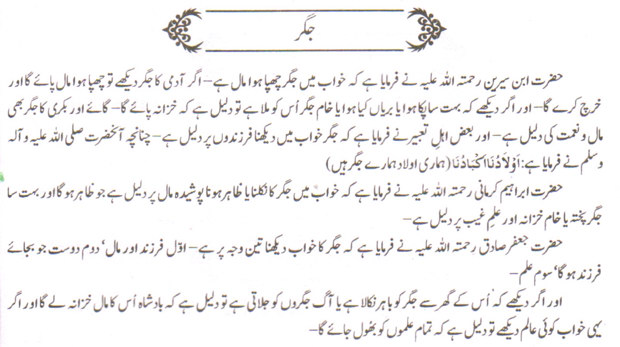 جگر
حضرت ابن سیرین رحمتہ اللہ علیہ نے فرمایا ہے کہ خواب میں جگر چھپا ہوا مال ہے۔ اگر آدمی کا جگر دیکھے تو چھپا ہوا مال پائے گا اور
خرچ کرے گا۔ اور اگر دیکھے کہ بہت سا پکا ہوا یا بریاں کیا ہوا یا خام جگر اُس کو ملا ہے تو دلیل ہے کہ خزانہ پائے گا۔ گائے اور بکری کا جگر بھی
مال و نعمت کی دلیل ہے۔ اور بعض اہلِ تعبیر نے فرمایا ہے کہ جگر خواب میں دیکھنا فرزندوں پر دلیل ہے۔ چنانچہ آنحضرت صلی اللہ علیہ و آلہ
وسلم نے فرمایا ہے: اَوْلَادُنَا اَکْبَادُنَا (ہماری اولاد ہمارے جگر ہیں)
حضرت ابراہیم کرمانی رحمتہ اللہ علیہ نے فرمایا ہے کہ خواب میں جگر کا نکلنا یا ظاہر ہونا پوشیدہ مال پر دلیل ہے جو ظاہر ہو گا اور بہت سا
جگر پختہ یا خام خزانہ اور علمِ غیب پر دلیل ہے۔
حضرت جعفر صادق رحمتہ اللہ علیہ نے فرمایا ہے کہ جگر کا خواب دیکھنا تین وجہ پر ہے۔ اوّل فرزند اور مال‘ دوم دوست جو بجائے
فرزند ہو گا‘ سوم علم۔
اور اگر دیکھے کہ اُس کے گھر سے جگر کو باہر نکالا ہے یا آگ جگروں کو جلاتی ہے تو دلیل ہے کہ بادشاہ اُس کا مال خزانہ لے گا اور اگر
یہی خواب کوئی عالم دیکھے تو دلیل ہے کہ تمام علموں کو بھول جائے گا۔